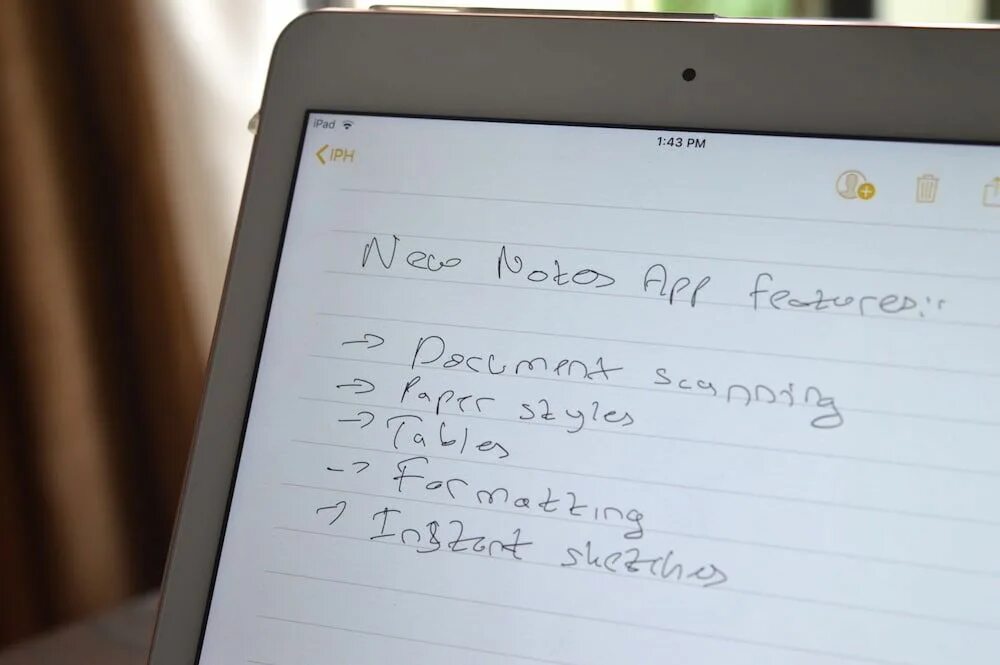 iPad
1:43 PM
IPH
New Notes App features:
→ Document scanning
→ Paper styles
→ Tables
→ Formatting
→ Instant sketches